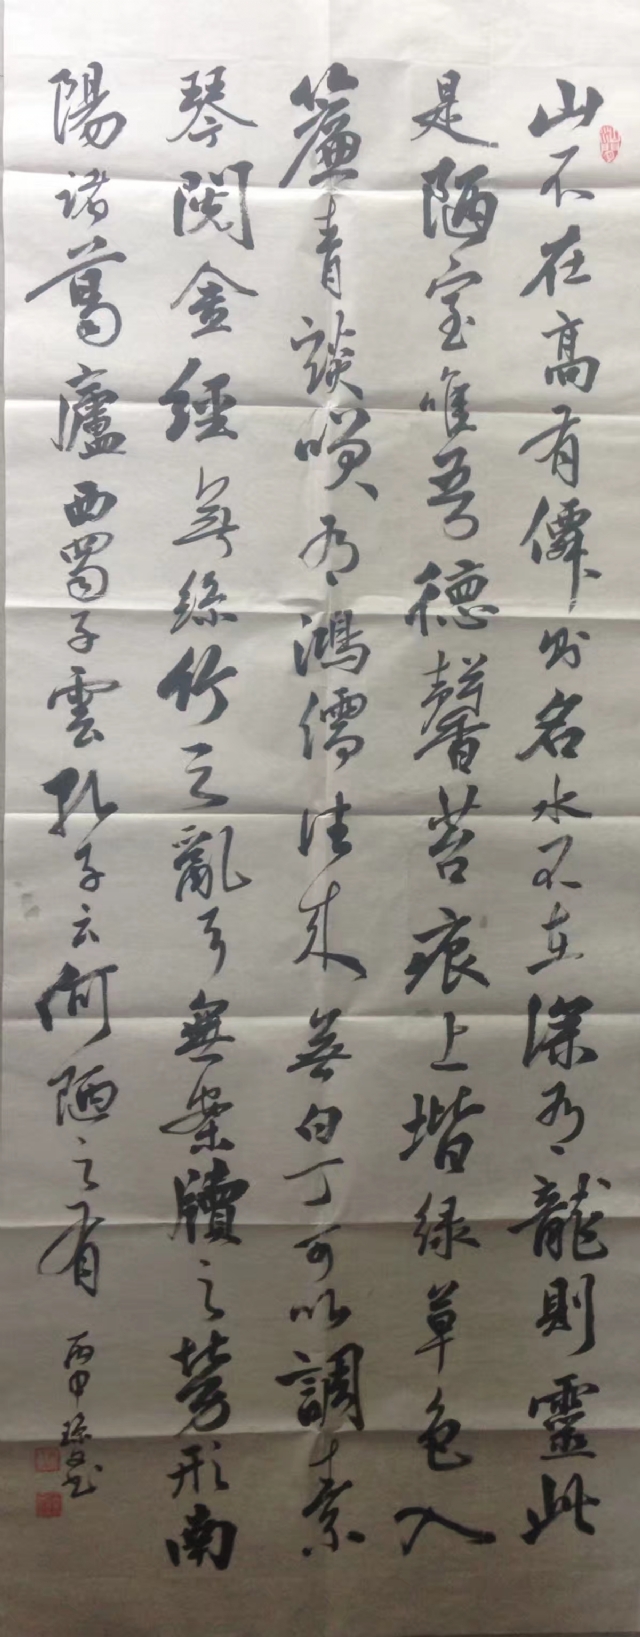 山不在高有僊則名水不在深有龍則靈此
是陋室唯吾德馨苔痕上堦綠草色入
簾青談唄有鴻儒往來無白丁可以調素
琴閱金經無絲竹之亂耳無案牘之勞形南
陽諸葛廬西蜀子雲孔子云何陋之有
丙申